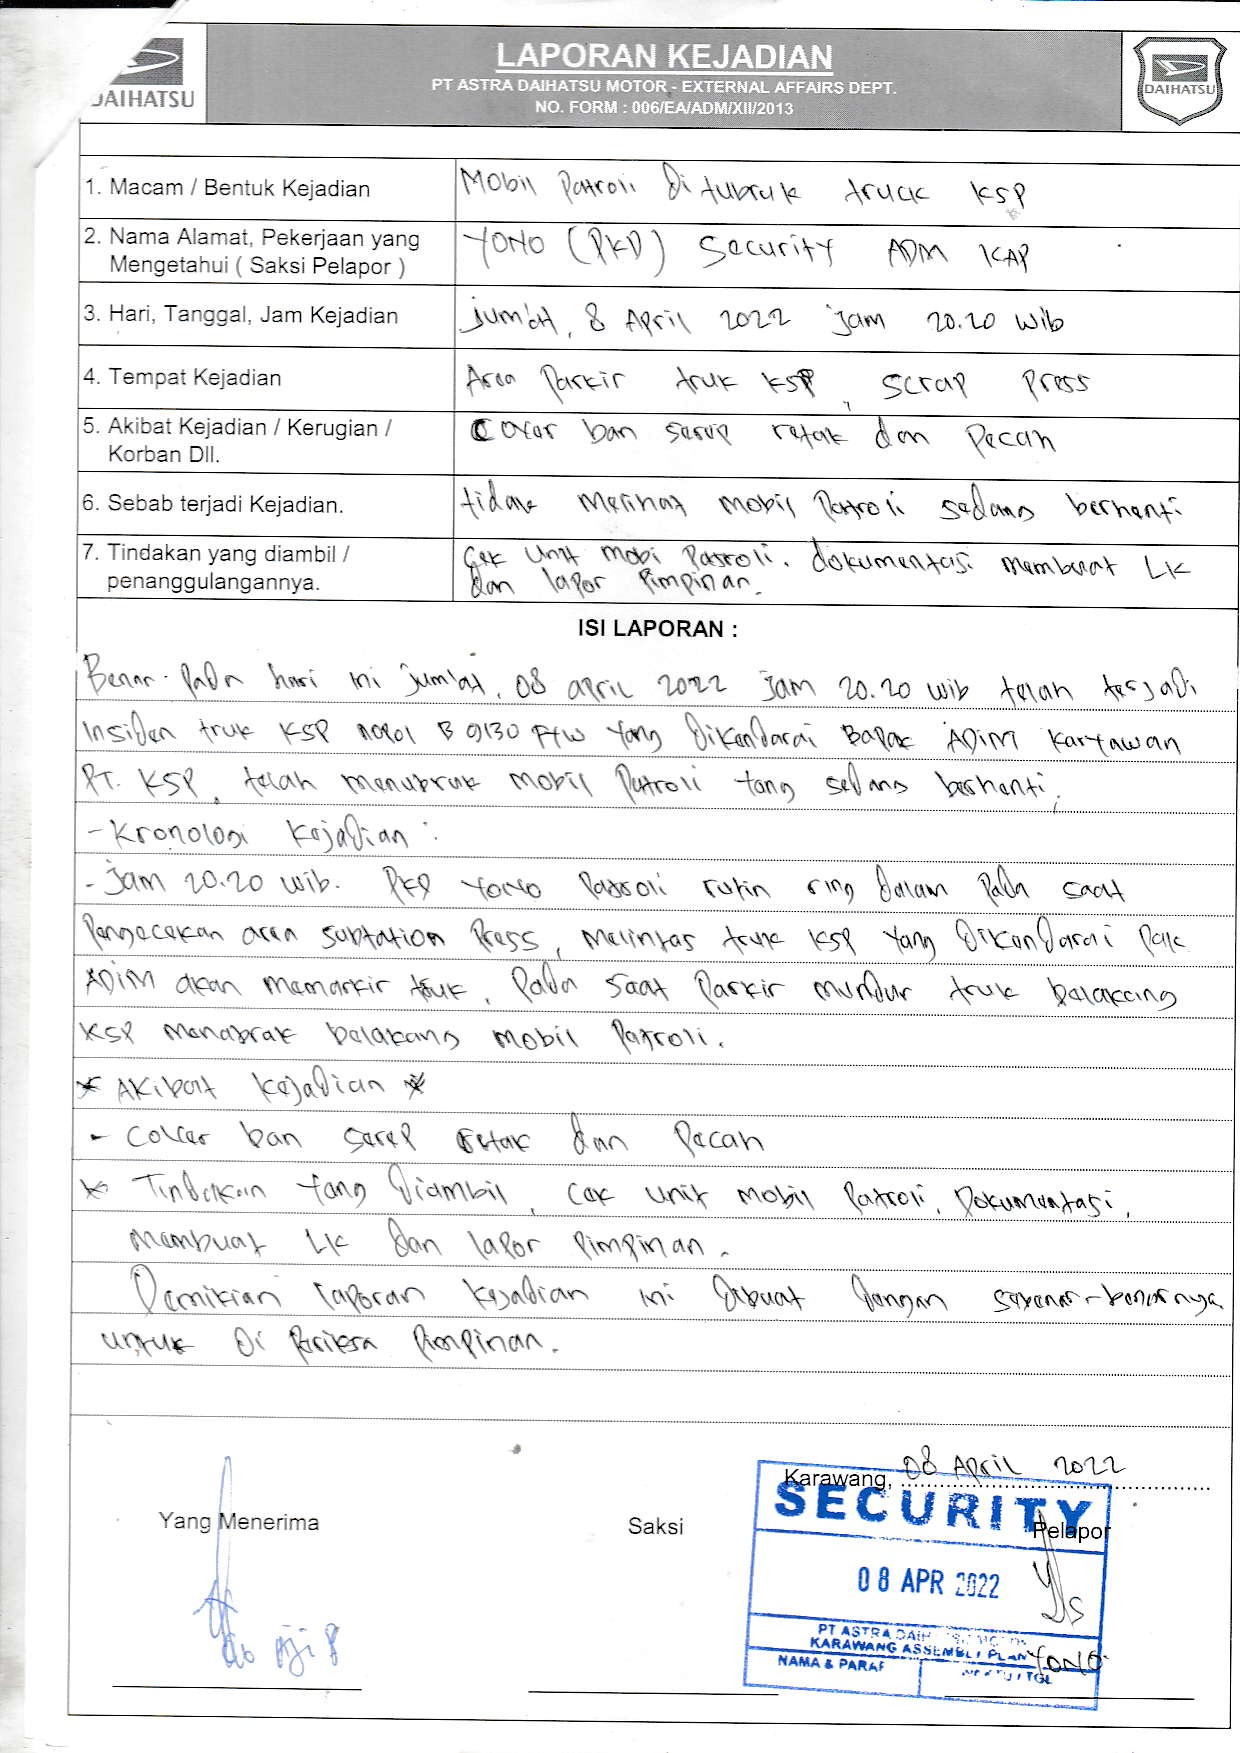 DAIHATSU
LAPORAN KEJADIAN
PT ASTRA DAIHATSU MOTOR - EXTERNAL AFFAIRS DEPT.
NO. FORM : 006/EA/ADM/XII/2013
DAIHATSU
1. Macam / Bentuk Kejadian
Mobil Patroli Ditubruk truck KSP
2. Nama Alamat, Pekerjaan yang
Mengetahui ( Saksi Pelapor )
YONO (PKD) Security ADM KAP
3. Hari, Tanggal, Jam Kejadian
jum'at, 8 April 2022 jam 20.20 wib
4. Tempat Kejadian
Area Parkir truk KSP, scrap Press
5. Akibat Kejadian / Kerugian /
Korban Dll.
Cover ban serep retak dan Pecah
6. Sebab terjadi Kejadian.
tidak Melihat mobil Patroli sedang berhenti
7. Tindakan yang diambil /
penanggulangannya.
Cek Unit mobi Patroli. dokumentasi membuat LK
dan lapor Pimpinan.
ISI LAPORAN :
Benar Pada hari ini jum'at, 08 april 2022 jam 20.20 wib telah terjadi
Insiden truk KSP nopol B 9130 Yang Dikendarai Bapak ADIM Karyawan
PT. KSP, telah menubruk mobil Patroli Yang sedang berhenti,
- Kronologi Kejadian :
- jam 20.20 wib. PKD YONO Patroli rutin ring dalam Pada saat
Pengecekan area subtation Press, Melintas truk KSP Yang Dikendarai Pak
ADIM akan memarkir truk, Pada saat Parkir mundur truk belakang
KSP Menabrak belakang mobil Patroli.
* Akibat Kejadian *
- Cover ban serep retak dan Pecah
* Tindakan Yang Diambil, Cek unit mobil Patroli, Dokumentasi,
membuat LK dan lapor Pimpinan.
Demikian laporan Kejadian ini Dibuat Dengan sebenar-benarnya
untuk Di Periksa Pimpinan.
Karawang, 08 April 2022
Yang Menerima
Saksi
Pelapor
SECURITY
08 APR 2022
PT ASTRA DAIHATSU MOTOR
KARAWANG ASSEMBLY PLAN
NAMA & PARAF
TGL
YONO